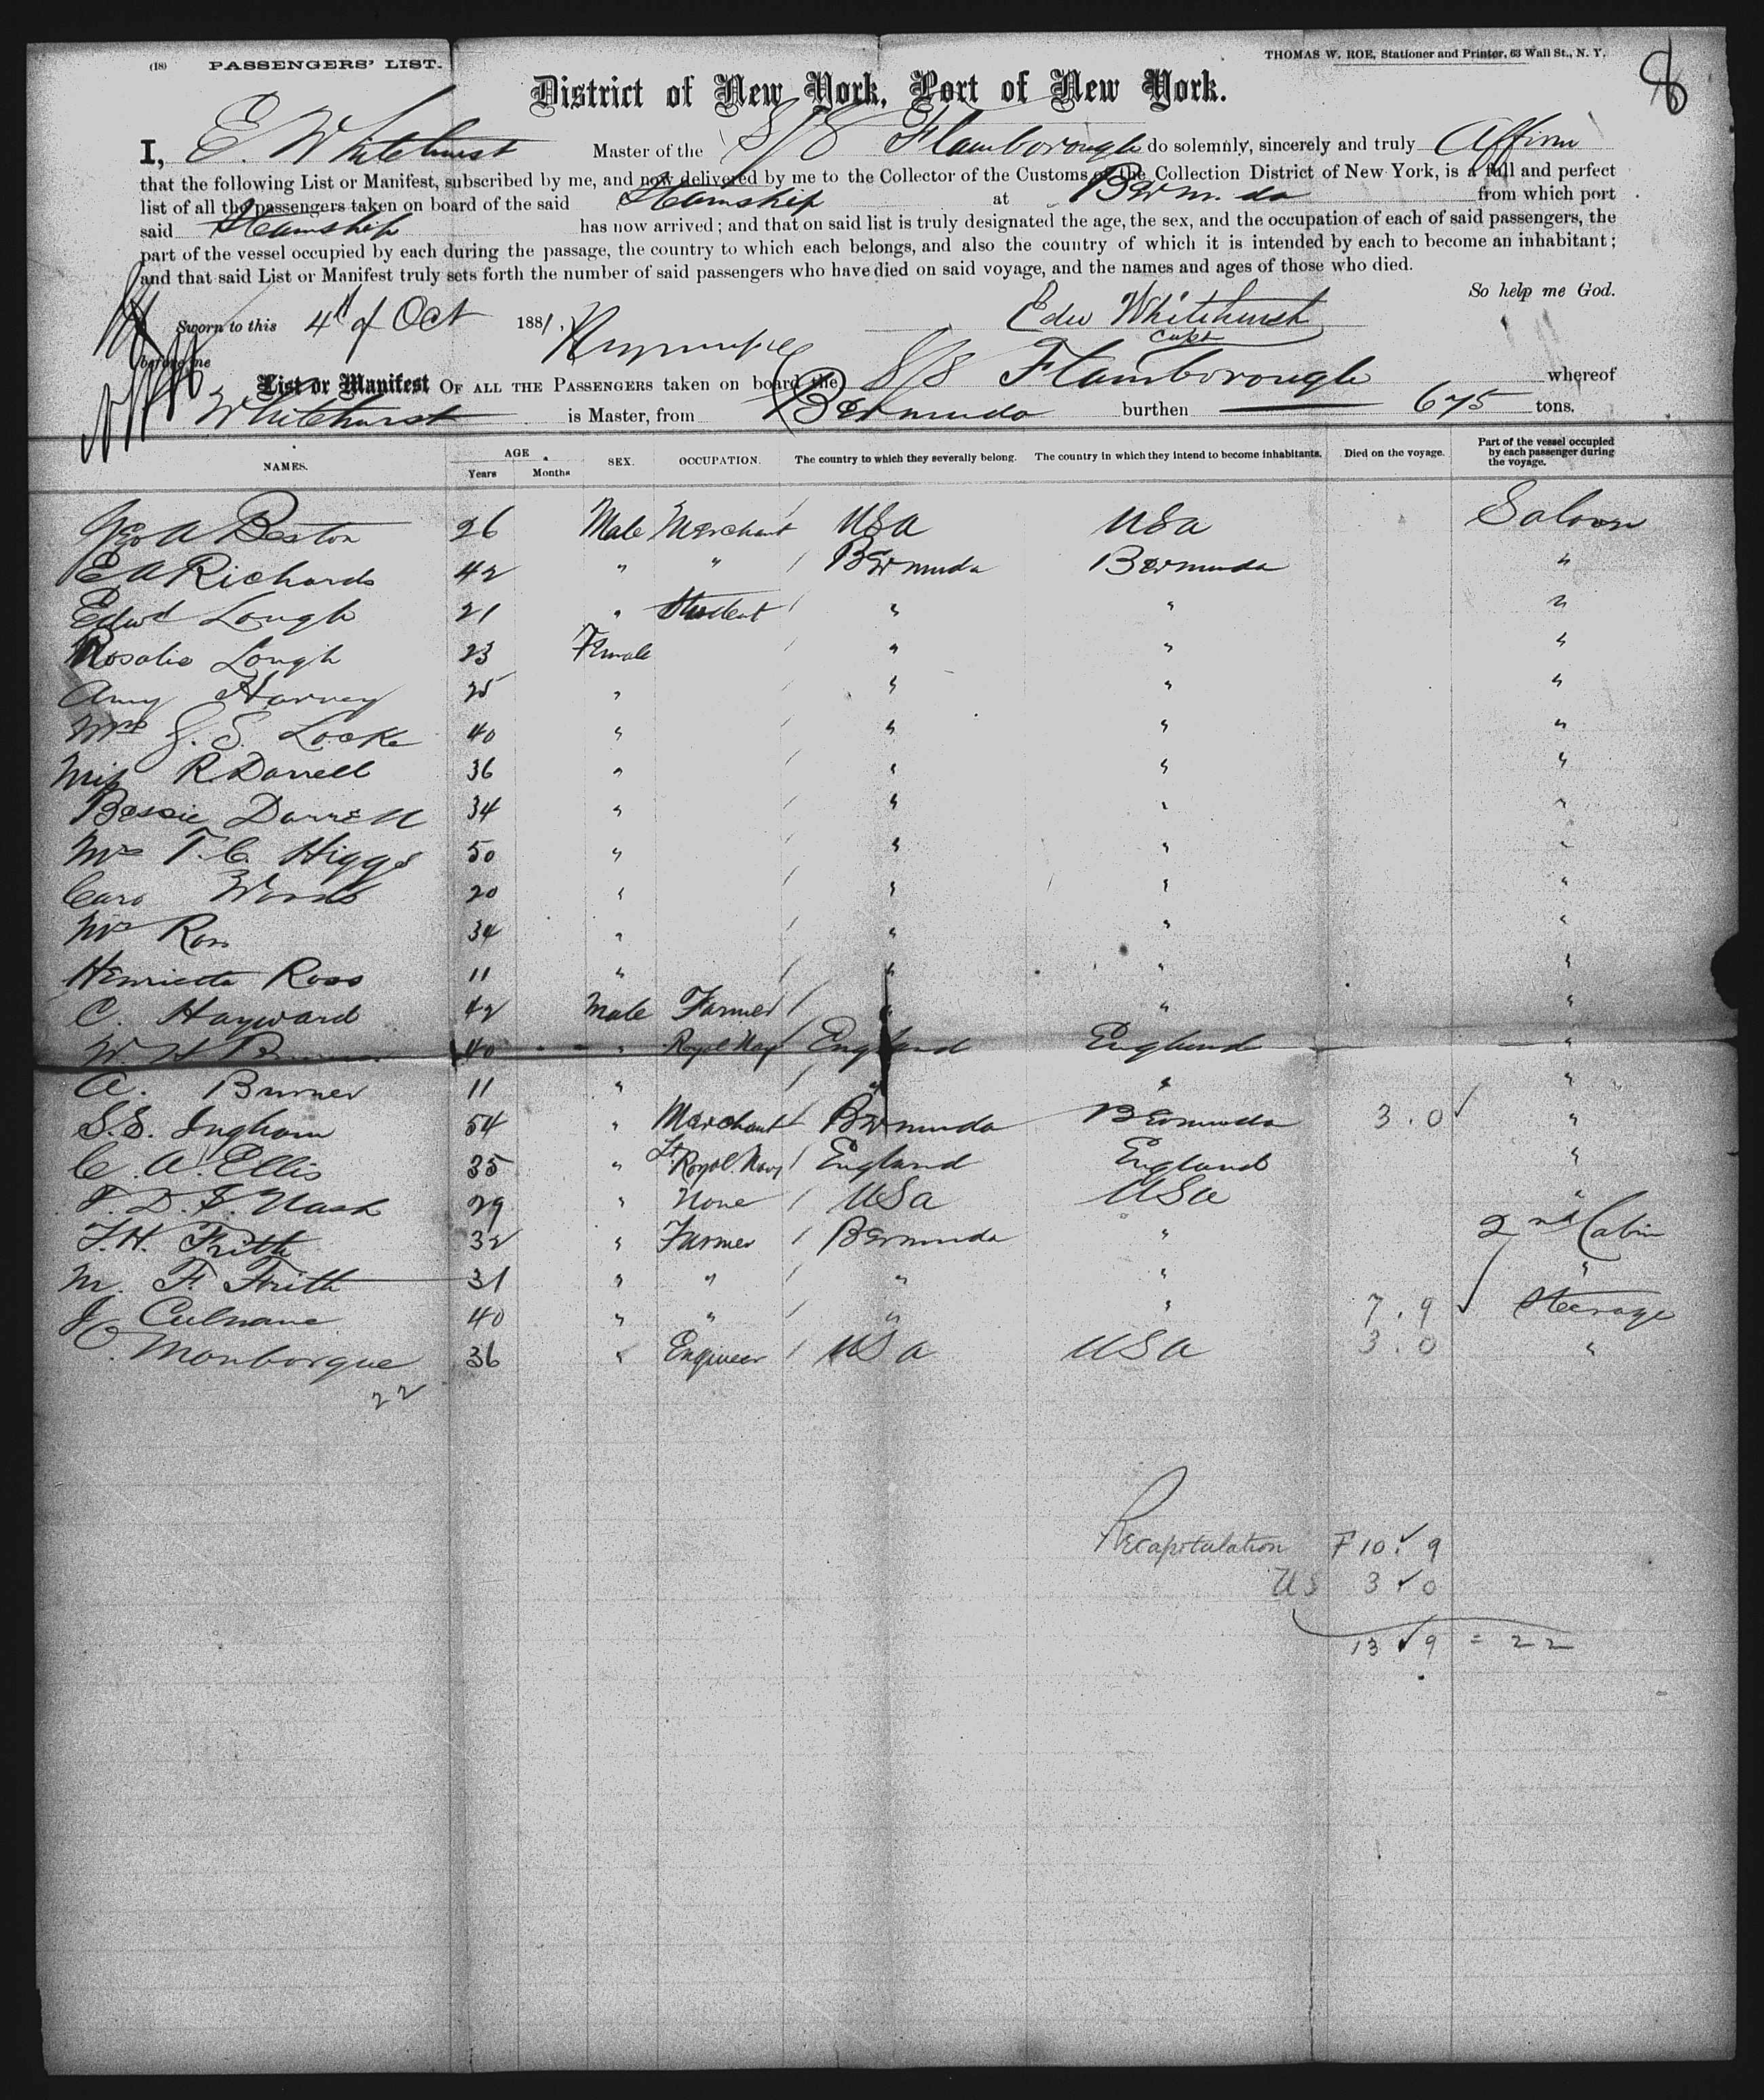 (18) PASSENGERS' LIST.
THOMAS W. ROE, Stationer and Printer, 63 Wall St., N. Y.
8
District of New York, Port of New York.
I, E. Whitehurst Master of the S/S Flamborough do solemnly, sincerely and truly Affirm
that the following List or Manifest, subscribed by me, and now delivered by me to the Collector of the Customs of the Collection District of New York, is a full and perfect
list of all the passengers taken on board of the said Steamship at Bermuda from which port
said Steamship has now arrived; and that on said list is truly designated the age, the sex, and the occupation of each of said passengers, the
part of the vessel occupied by each during the passage, the country to which each belongs, and also the country of which it is intended by each to become an inhabitant;
and that said List or Manifest truly sets forth the number of said passengers who have died on said voyage, and the names and ages of those who died.
So help me God.
Sworn to this 4th of Oct 1881,
Edw Whitehurst
Capt
before me
List or Manifest OF ALL THE PASSENGERS taken on board the S/S Flamborough whereof
Whitehurst is Master, from Bermuda burthen 675 tons.
NAMES. AGE Years Months SEX. OCCUPATION. The country to which they severally belong. The country in which they intend to become inhabitants. Died on the voyage. Part of the vessel occupied by each passenger during the voyage.
Geo A Beston 26 Male Merchant / USA USA Saloon
E A Richards 42 " " / Bermuda Bermuda "
Edwd Lough 21 " Student / " " "
Rosalie Lough 23 Female / " " "
Amy Harvey 25 " / " " "
Mrs J. S. Locke 40 " / " " "
Miss R. Darrell 36 " / " " "
Bessie Darrell 34 " / " " "
Mrs T. C. Higgs 50 " / " " "
Cara Woods 20 " / " " "
Mrs Ross 34 " / " " "
Henrietta Ross 11 " / " " "
C. Hayward 42 Male Farmer / " " "
W H 40 " Royal Navy / England England "
A. Burner 11 " / " " "
S. S. Ingham 54 " Merchant / Bermuda Bermuda 3 . 0 ✓ "
C. A. Ellis 35 " Lt Royal Navy / England England "
T. D. F. Nash 29 " None / USA USA "
T. H. Frith 32 " Farmer / Bermuda " 2nd Cabin
M. F. Frith 31 " " / " " "
J Culnane 40 " " / " " 7 . 9 ✓ Steerage
Monborgue 36 " Engineer / USA USA 3 . 0 "
22
Recapitulation F 10 ✓ 9
US 3 ✓ 0
13 ✓ 9 = 22